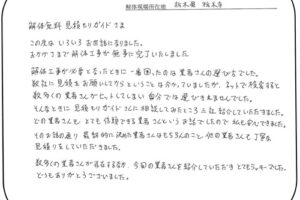 解体現場所在地 栃木県 栃木市
解体無料見積もりガイドさま
この度はいろいろお世話になりました。
おかげさまで解体工事が無事に完了いたしました。
解体工事が必要となったときに一番困ったのは業者さんの選び方でした。
数社に見積をお願いしてからということは分かっていましたが、ネットで検索すると
数多くの業者さんがヒットしてしまい自分では選びきれませんでした。
そんなときに見積もりガイドさんに相談してみたところ三社紹介していただきました。
どの業者さんも、とても信頼できる業者さんというお話でしたので私も安心できました。
そのお話の通り最終的に決めた業者さんはもちろんのこと、他の業者さんも丁寧な
見積りをしていただきました。
数多くの業者さんが存在する中、今回の業者さんを紹介していただきとてもラッキーでした。
どうもありがとうございました。